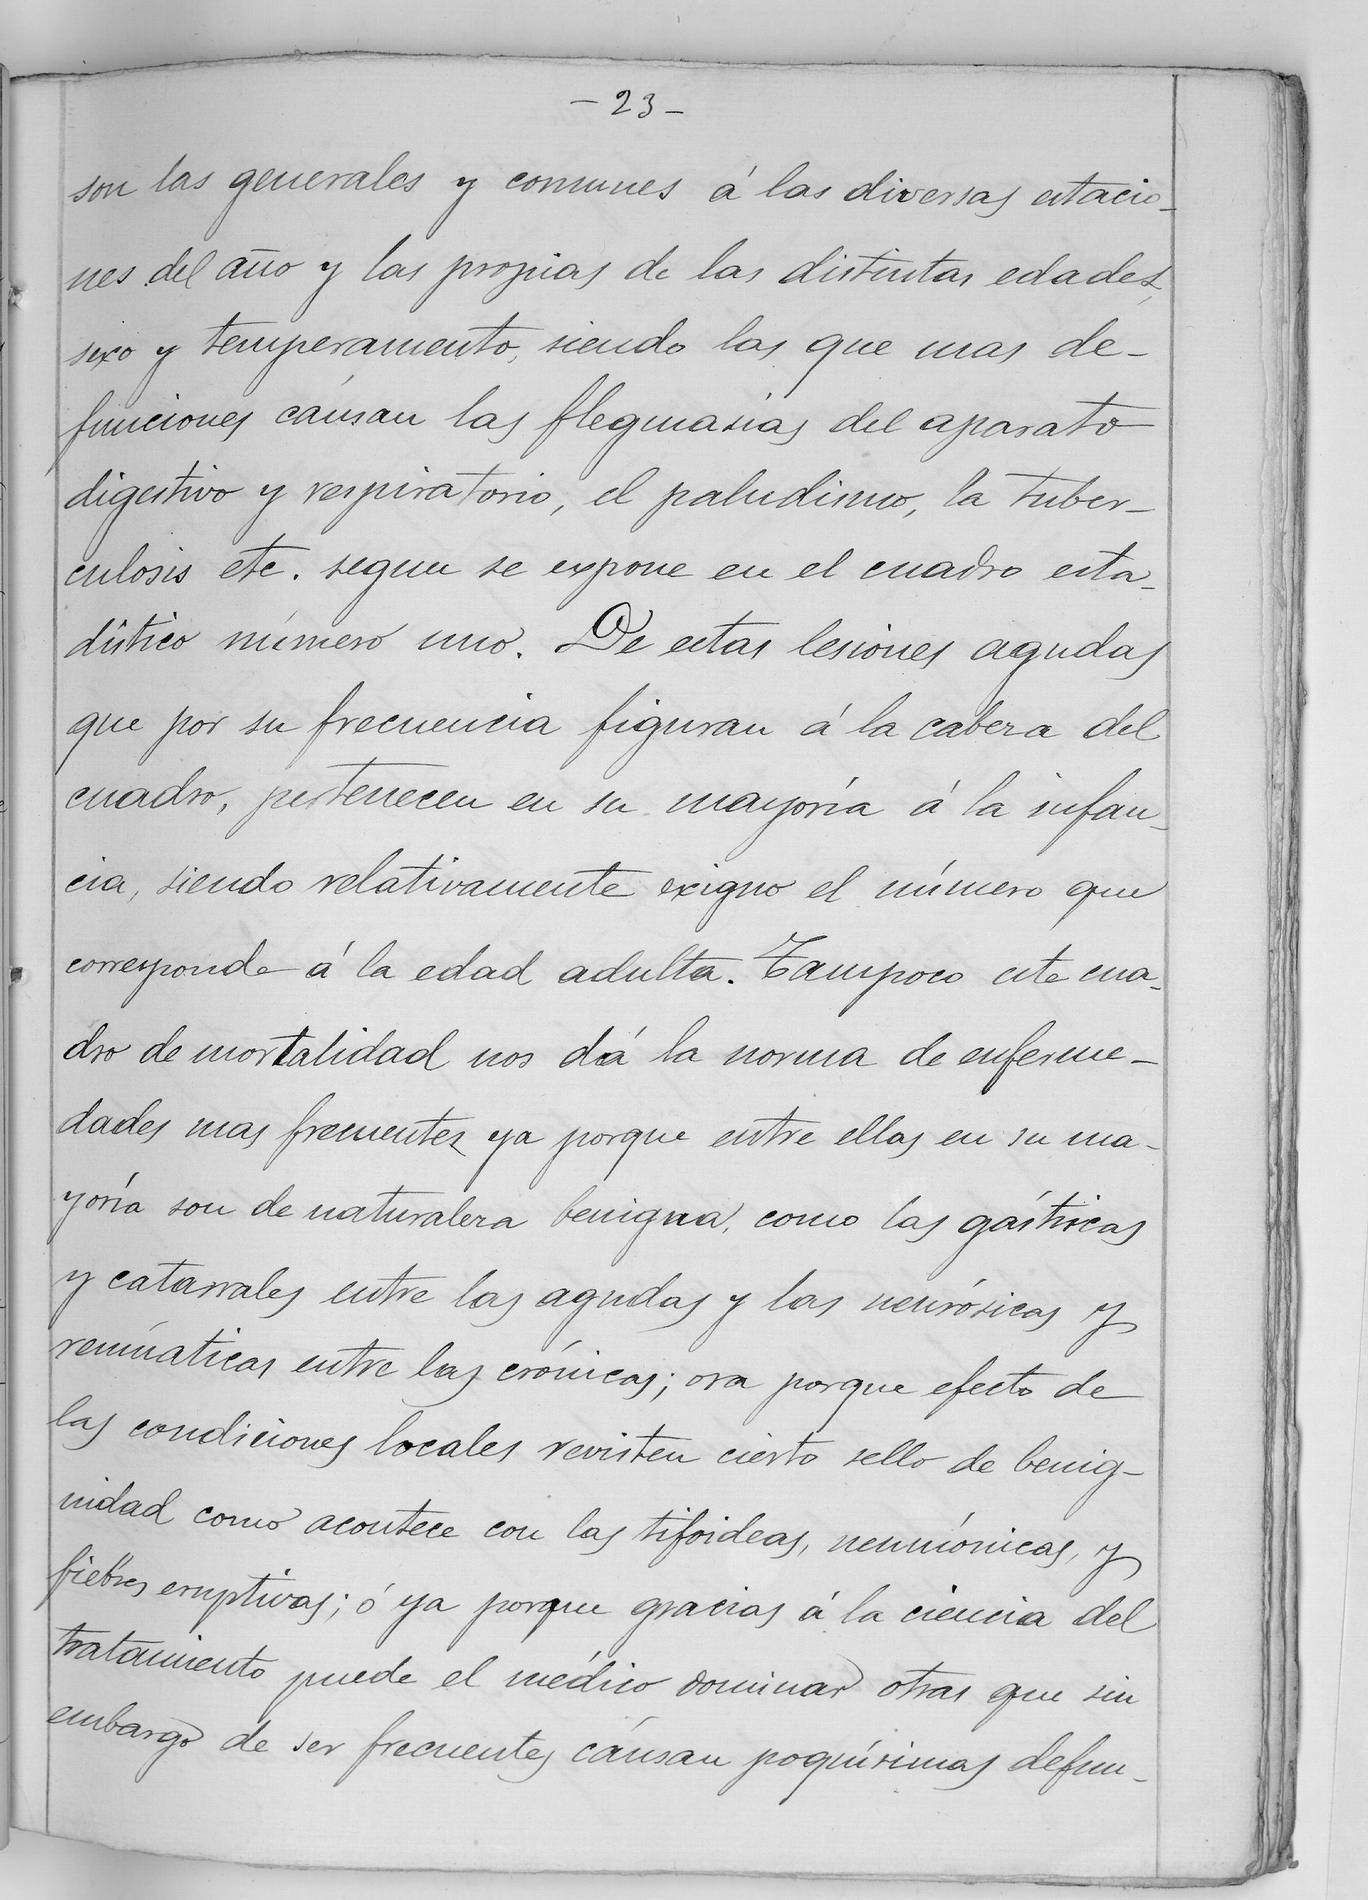 - 23 -
son las generales y comunes á las diversas estacio-
nes del año y las propias de las distintas edades,
sexo y temperamento, siendo las que mas de-
funciones cáusan las flegmasias del aparato
digestivo y respiratorio, el paludismo, la tuber-
culosis etc. segun se expone en el cuadro esta-
dístico número uno. De estas lesiones agudas
que por su frecuencia figuran á la cabeza del
cuadro, pertenecen en su mayoría á la infan-
cia, siendo relativamente exiguo el número que
corresponde á la edad adulta. Tampoco este cua-
dro de mortalidad nos dá la norma de enferme-
dades mas frecuentes ya porque entre ellas en su ma-
yoría son de naturaleza benigna, como las gástricas
y catarrales entre las agudas y las neurósicas y
reumáticas entre las crónicas; ora porque efecto de
las condiciones locales revisten cierto sello de benig-
nidad como acontece con las tifoideas, neumónicas, y
fiebres eruptivas; ó ya porque gracias á la ciencia del
tratamiento puede el médico dominar otras que sin
embargo de ser frecuentes cáusan poquísimas defun-